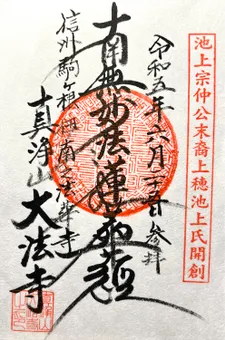 池上宗仲公末裔上穂池上氏開創
令和五年六月 参拝
南無妙法蓮華経
信州駒ヶ根 南之法華寺
真浄山大法寺